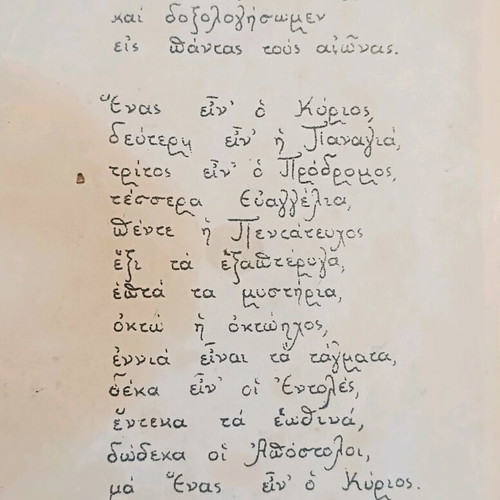 καί δοξολογήσωμεν
εἰς πάντας τούς αἰῶνας.
Ἕνας εἶν' ὁ Κύριος,
δεύτερη εἶν' ἡ Παναγιά,
τρίτος εἶν' ὁ Πρόδρομος,
τέσσερα Εὐαγγέλια,
πέντε ἡ Πεντάτευχος
ἕξι τά ἑξαπτέρυγα,
ἑπτά τα μυστήρια,
ὀκτώ ἡ ὀκτώηχος,
ἐννιά εἶναι τά τάγματα,
δέκα εἶν' οἱ Ἐντολές,
ἕντεκα τά ἑωθινά,
δώδεκα οἱ Ἀπόστολοι,
μά Ἕνας εἶν' ὁ Κύριος.